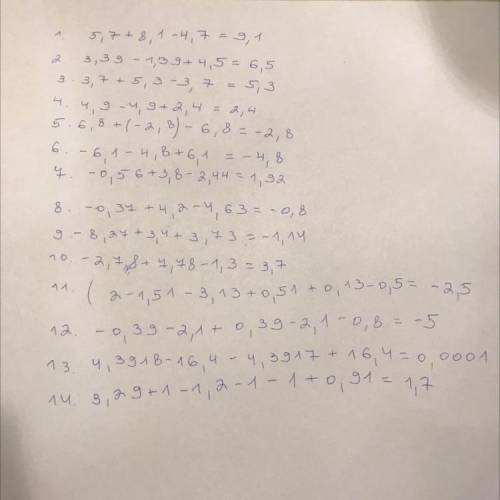 1. 5,7+8,1-4,7=9,1
2. 3,39-1,39+4,5=6,5
3. 3,7+5,3-3,7=5,3
4. 4,9-4,9+2,4=2,4
5. 6,8+(-2,8)-6,8=-2,8
6. -6,1-4,8+6,1=-4,8
7. -0,56+3,8-2,44=1,92
8. -0,37+4,2-4,63=-0,8
9 -8,27+3,4+3,73=-1,14
10. -2,78+7,78-1,3=3,7
11. (2-1,51-3,13+0,51+0,13-0,5=-2,5
12. -0,39-2,1+0,39-2,1-0,8=-5
13. 4,3918-16,4-4,3917+16,4=0,0001
14. 3,29+1-1,2-1-1+0,91=1,7